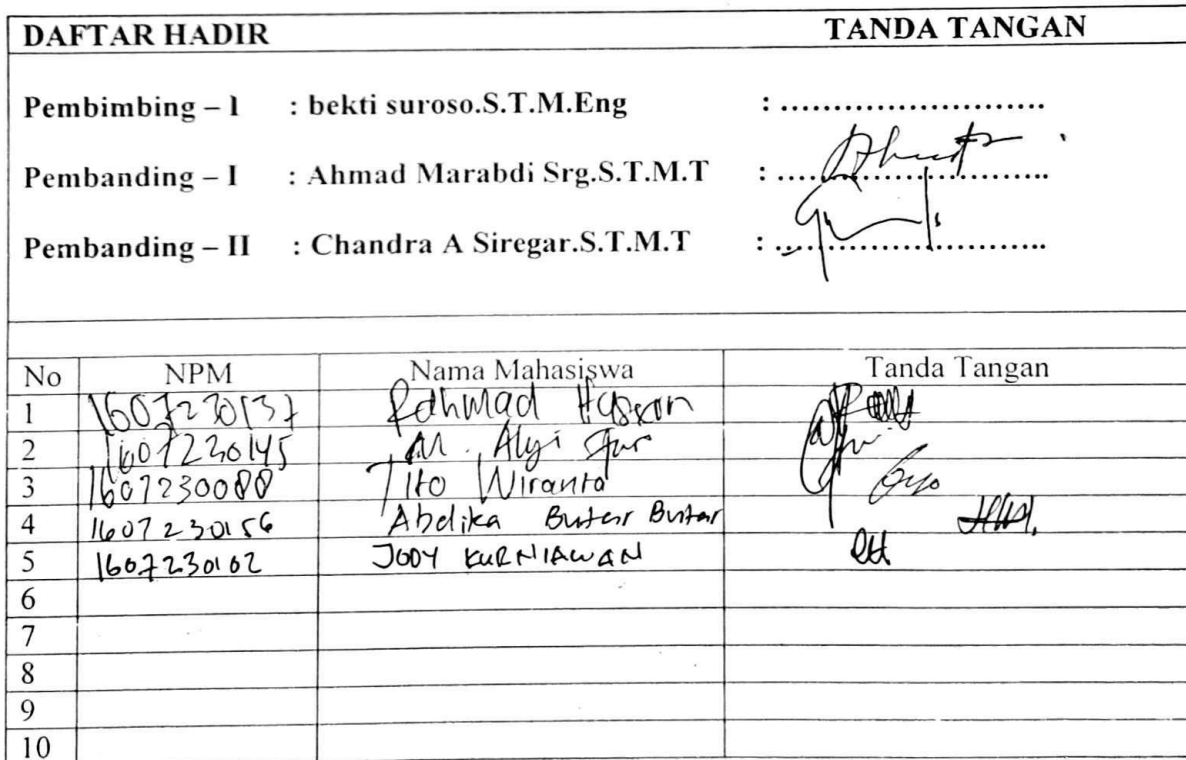 DAFTAR HADIR TANDA TANGAN
Pembimbing – I : bekti suroso.S.T.M.Eng : ............................
Pembanding – I : Ahmad Marabdi Srg.S.T.M.T : ............................
Pembanding – II : Chandra A Siregar.S.T.M.T : ............................
No NPM Nama Mahasiswa Tanda Tangan
1 1607230137 Rahmad Hassan
2 1607230145 M. Algi
3 1607230088 Tito Wiranto
4 1607230156 Abdika Butar Butar
5 1607230102 JODY KURNIAWAN
6
7
8
9
10